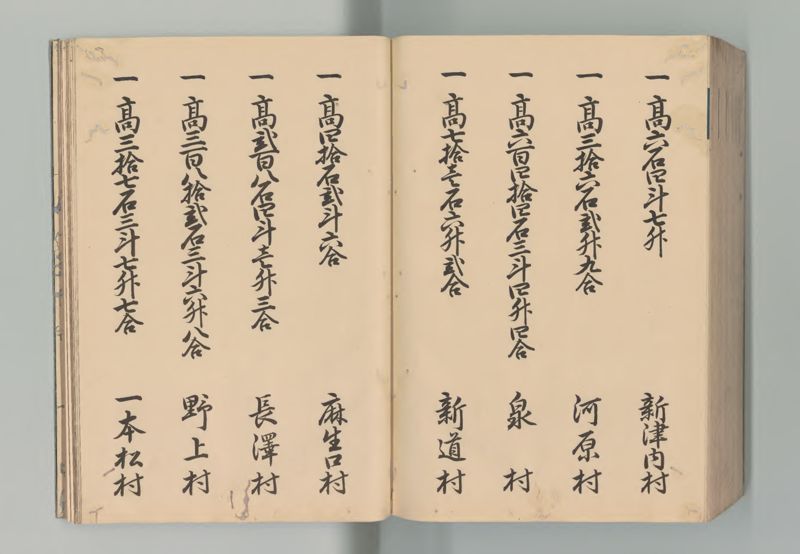 一高六石四斗七升 新津内村
一高三拾六石弐升九合 河原村
一高六百四拾四石三斗四升四合 泉村
一高七拾壱石六升弐合 新道村
一高四拾石弐斗六合 麻生口村
一高弐百八石四斗壱升三合 長澤村
一高三百八拾弐石三斗六升八合 野上村
一高三拾七石三斗七升七合 一本松村